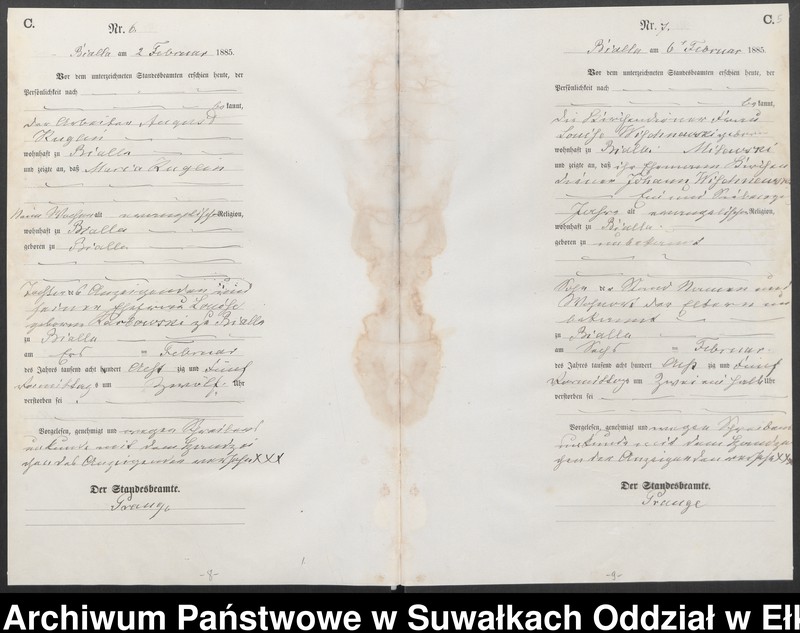 C.
Nr. 6.
Bialla am 2 Februar 1885.
Vor dem unterzeichneten Standesbeamten erschien heute, der
Persönlichkeit nach
bekannt,
der Arbeiter August
Kuglin
wohnhaft zu Bialla
und zeigte an, daß Maria Kuglin
neun Wochen alt evangelischer Religion,
wohnhaft zu Bialla
geboren zu Bialla
Tochter des Anzeigenden und
seiner Ehefrau Louise
geborene zu Bialla
zu Bialla
am Februar
des Jahres tausend acht hundert Acht zig und fünf
Vormittags um Zwölf Uhr
verstorben sei
Vorgelesen, genehmigt und wegen Schreibens
unkunde mit dem Handzei
chen des Anzeigenden versehn XXX
Der Standesbeamte.
Prange
-8-
C.
Nr. 7.
Bialla am 6 Februar 1885.
Vor dem unterzeichneten Standesbeamten erschien heute, der
Persönlichkeit nach
bekannt,
die Kirchendiener Frau
Louise geborne
wohnhaft zu Bialla Milewski
und zeigte an, daß ihr Ehemann Kirchen
diener Johann
ein und
Jahre alt evangelischer Religion,
wohnhaft zu Bialla
geboren zu unbekannt
Sohn Namen und
Wohnort der Eltern un
bekannt
zu Bialla
am Februar
des Jahres tausend acht hundert Acht zig und fünf
Vormittags um Zwei ein halb Uhr
verstorben sei
Vorgelesen, genehmigt und wegen Schreibens
unkunde mit dem Handzei
chen der Anzeigenden versehn XXX
Der Standesbeamte.
Prange
-9-
Archiwum Państwowe w Suwałkach Oddział w Ełk